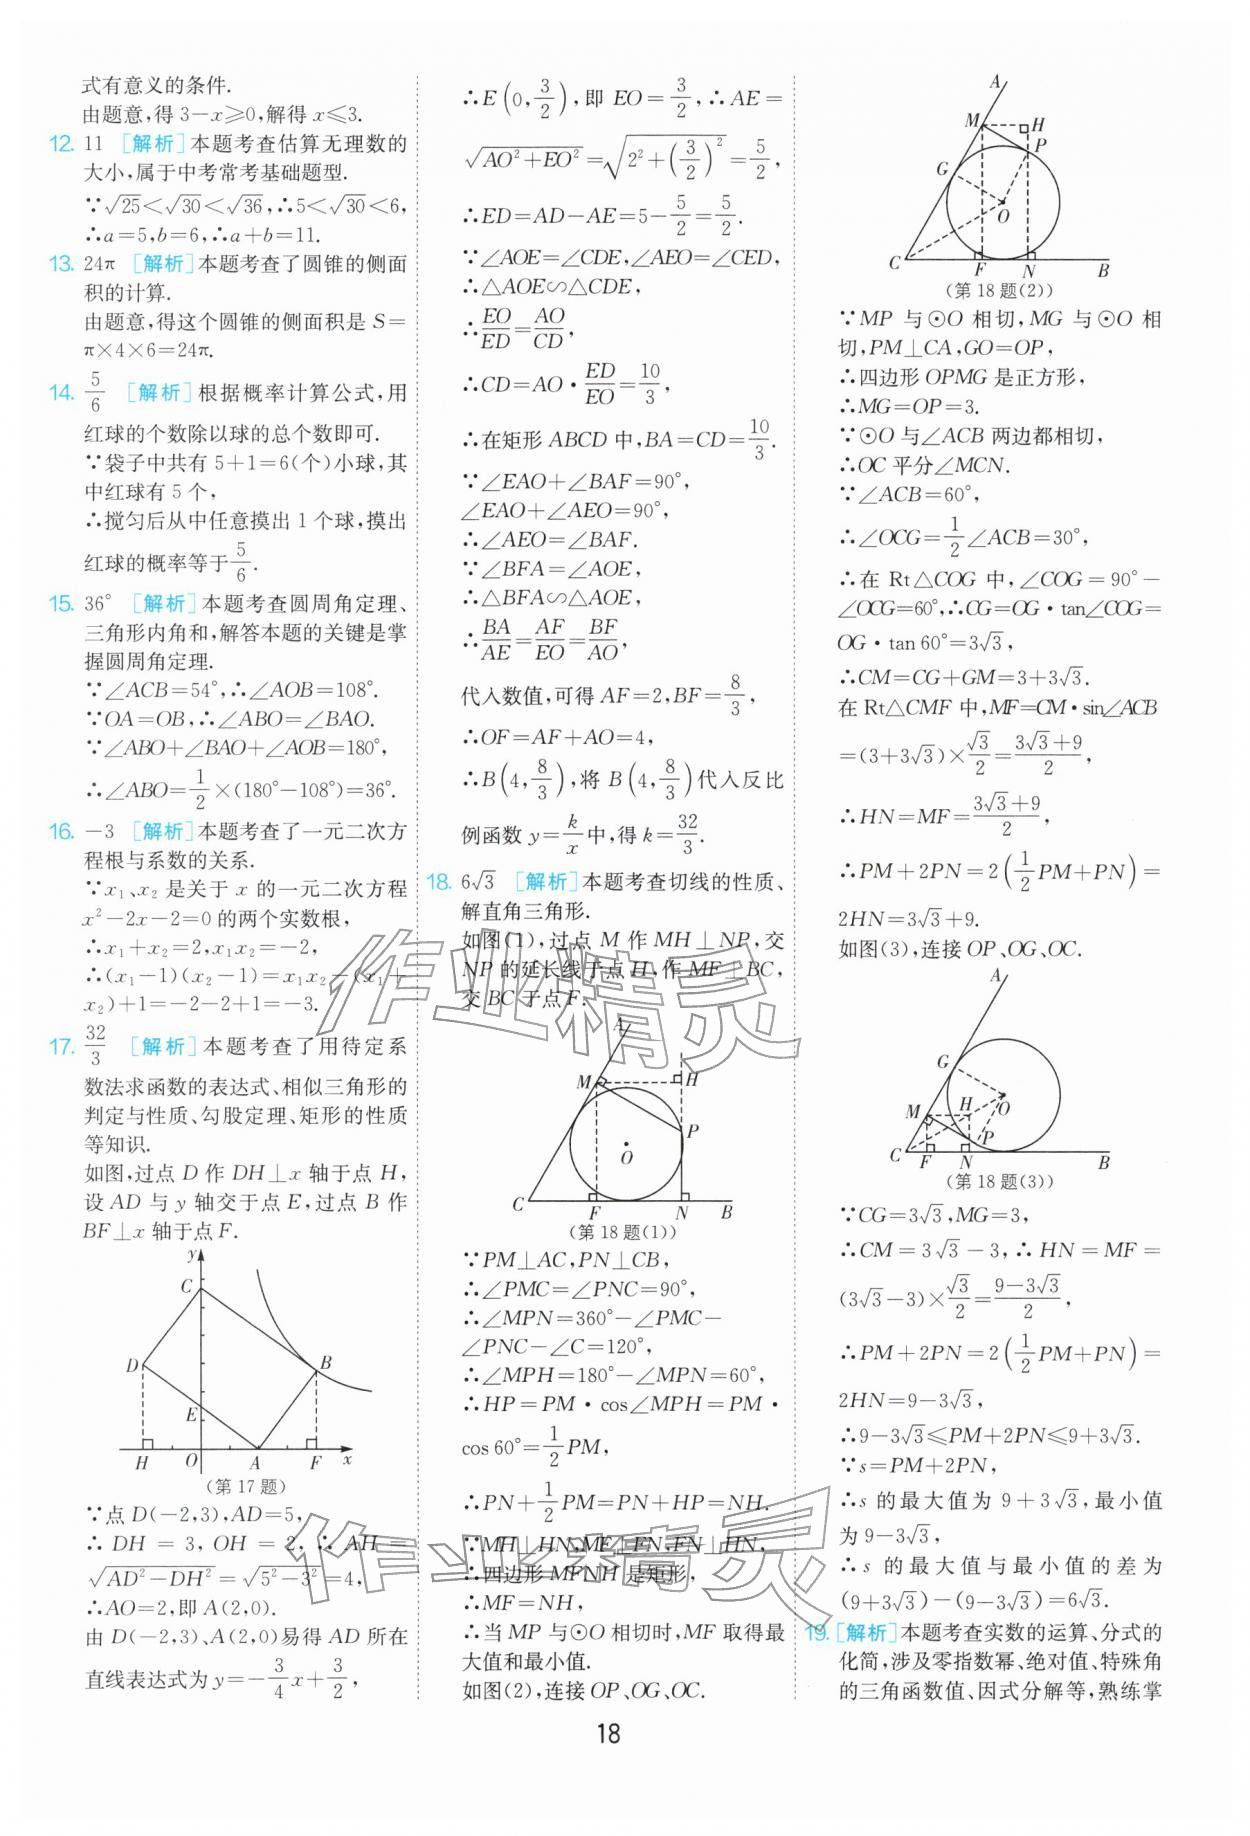 式有意义的条件.
由题意,得 3-x≥0,解得 x≤3.
12. 11 [解析]本题考查估算无理数的
大小,属于中考常考基础题型.
∵√25<√30<√36,∴5<√30<6,
∴a=5,b=6,∴a+b=11.
13. 24π [解析]本题考查了圆锥的侧面
积的计算.
由题意,得这个圆锥的侧面积是 S=
π×4×6=24π.
14. 5/6 [解析]根据概率计算公式,用
红球的个数除以球的总个数即可.
∵袋子中共有 5+1=6(个)小球,其
中红球有 5 个,
∴搅匀后从中任意摸出 1 个球,摸出
红球的概率等于5/6.
15. 36° [解析]本题考查圆周角定理、
三角形内角和,解答本题的关键是掌
握圆周角定理.
∵∠ACB=54°,∴∠AOB=108°.
∵OA=OB,∴∠ABO=∠BAO.
∵∠ABO+∠BAO+∠AOB=180°,
∴∠ABO=1/2×(180°-108°)=36°.
16. -3 [解析]本题考查了一元二次方
程根与系数的关系.
∵x₁、x₂ 是关于 x 的一元二次方程
x²-2x-2=0 的两个实数根,
∴x₁+x₂=2,x₁x₂=-2,
∴(x₁-1)(x₂-1)=x₁x₂-(x₁+
x₂)+1=-2-2+1=-3.
17. 32/3 [解析]本题考查了用待定系
数法求函数的表达式、相似三角形的
判定与性质、勾股定理、矩形的性质
等知识.
如图,过点 D 作 DH⊥x 轴于点 H,
设 AD 与 y 轴交于点 E,过点 B 作
BF⊥x 轴于点 F.
y
C
D
B
E
H O A F x
(第 17 题)
∵点 D(-2,3),AD=5,
∴ DH = 3, OH = 2, ∴ AH =
√(AD²-DH²)=√(5²-3²)=4,
∴AO=2,即 A(2,0).
由 D(-2,3)、A(2,0)易得 AD 所在
直线表达式为 y=-3/4x+3/2,
∴E(0,3/2),即 EO=3/2,∴AE=
√(AO²+EO²)=√(2²+(3/2)²)=5/2,
∴ED=AD-AE=5-5/2=5/2.
∵∠AOE=∠CDE,∠AEO=∠CED,
∴△AOE∽△CDE,
∴EO/ED=AO/CD,
∴CD=AO·ED/EO=10/3,
∴在矩形 ABCD 中,BA=CD=10/3.
∵∠EAO+∠BAF=90°,
∠EAO+∠AEO=90°,
∴∠AEO=∠BAF.
∵∠BFA=∠AOE,
∴△BFA∽△AOE,
∴BA/AE=AF/EO=BF/AO,
代入数值,可得 AF=2,BF=8/3,
∴OF=AF+AO=4,
∴B(4,8/3),将 B(4,8/3)代入反比
例函数 y=k/x中,得 k=32/3.
18. 6√3 [解析]本题考查切线的性质、
解直角三角形.
如图(1),过点 M 作 MH⊥NP,交
NP 的延长线于点 H,作 MF⊥BC,
交 BC 于点 F.
A
M H
P
O
C F N B
(第 18 题(1))
∵PM⊥AC,PN⊥CB,
∴∠PMC=∠PNC=90°,
∴∠MPN=360°-∠PMC-
∠PNC-∠C=120°,
∴∠MPH=180°-∠MPN=60°,
∴HP=PM·cos∠MPH=PM·
cos 60°=1/2PM,
∴PN+1/2PM=PN+HP=NH.
∵MH⊥HN,MF⊥FN,FN⊥HN,
∴四边形 MFNH 是矩形,
∴MF=NH,
∴当 MP 与⊙O 相切时,MF 取得最
大值和最小值.
如图(2),连接 OP、OG、OC.
A
M H
P
G
O
C F N B
(第 18 题(2))
∵MP 与⊙O 相切,MG 与⊙O 相
切,PM⊥CA,GO=OP,
∴四边形 OPMG 是正方形,
∴MG=OP=3.
∵⊙O 与∠ACB 两边都相切,
∴OC 平分∠MCN.
∵∠ACB=60°,
∴∠OCG=1/2∠ACB=30°,
∴在 Rt△COG 中,∠COG=90°-
∠OCG=60°,∴CG=OG·tan∠COG=
OG·tan 60°=3√3,
∴CM=CG+GM=3+3√3.
在 Rt△CMF 中,MF=CM·sin∠ACB
=(3+3√3)×√3/2=(3√3+9)/2,
∴HN=MF=(3√3+9)/2,
∴PM+2PN=2(1/2PM+PN)=
2HN=3√3+9.
如图(3),连接 OP、OG、OC.
A
G
M H O
P
C F N B
(第 18 题(3))
∵CG=3√3,MG=3,
∴CM=3√3-3,∴HN=MF=
(3√3-3)×√3/2=(9-3√3)/2,
∴PM+2PN=2(1/2PM+PN)=
2HN=9-3√3,
∴9-3√3≤PM+2PN≤9+3√3.
∵s=PM+2PN,
∴s 的最大值为 9+3√3,最小值
为 9-3√3,
∴s 的最大值与最小值的差为
(9+3√3)-(9-3√3)=6√3.
19. [解析]本题考查实数的运算、分式的
化简,涉及零指数幂、绝对值、特殊角
的三角函数值、因式分解等,熟练掌
18
作业精灵
作业精灵